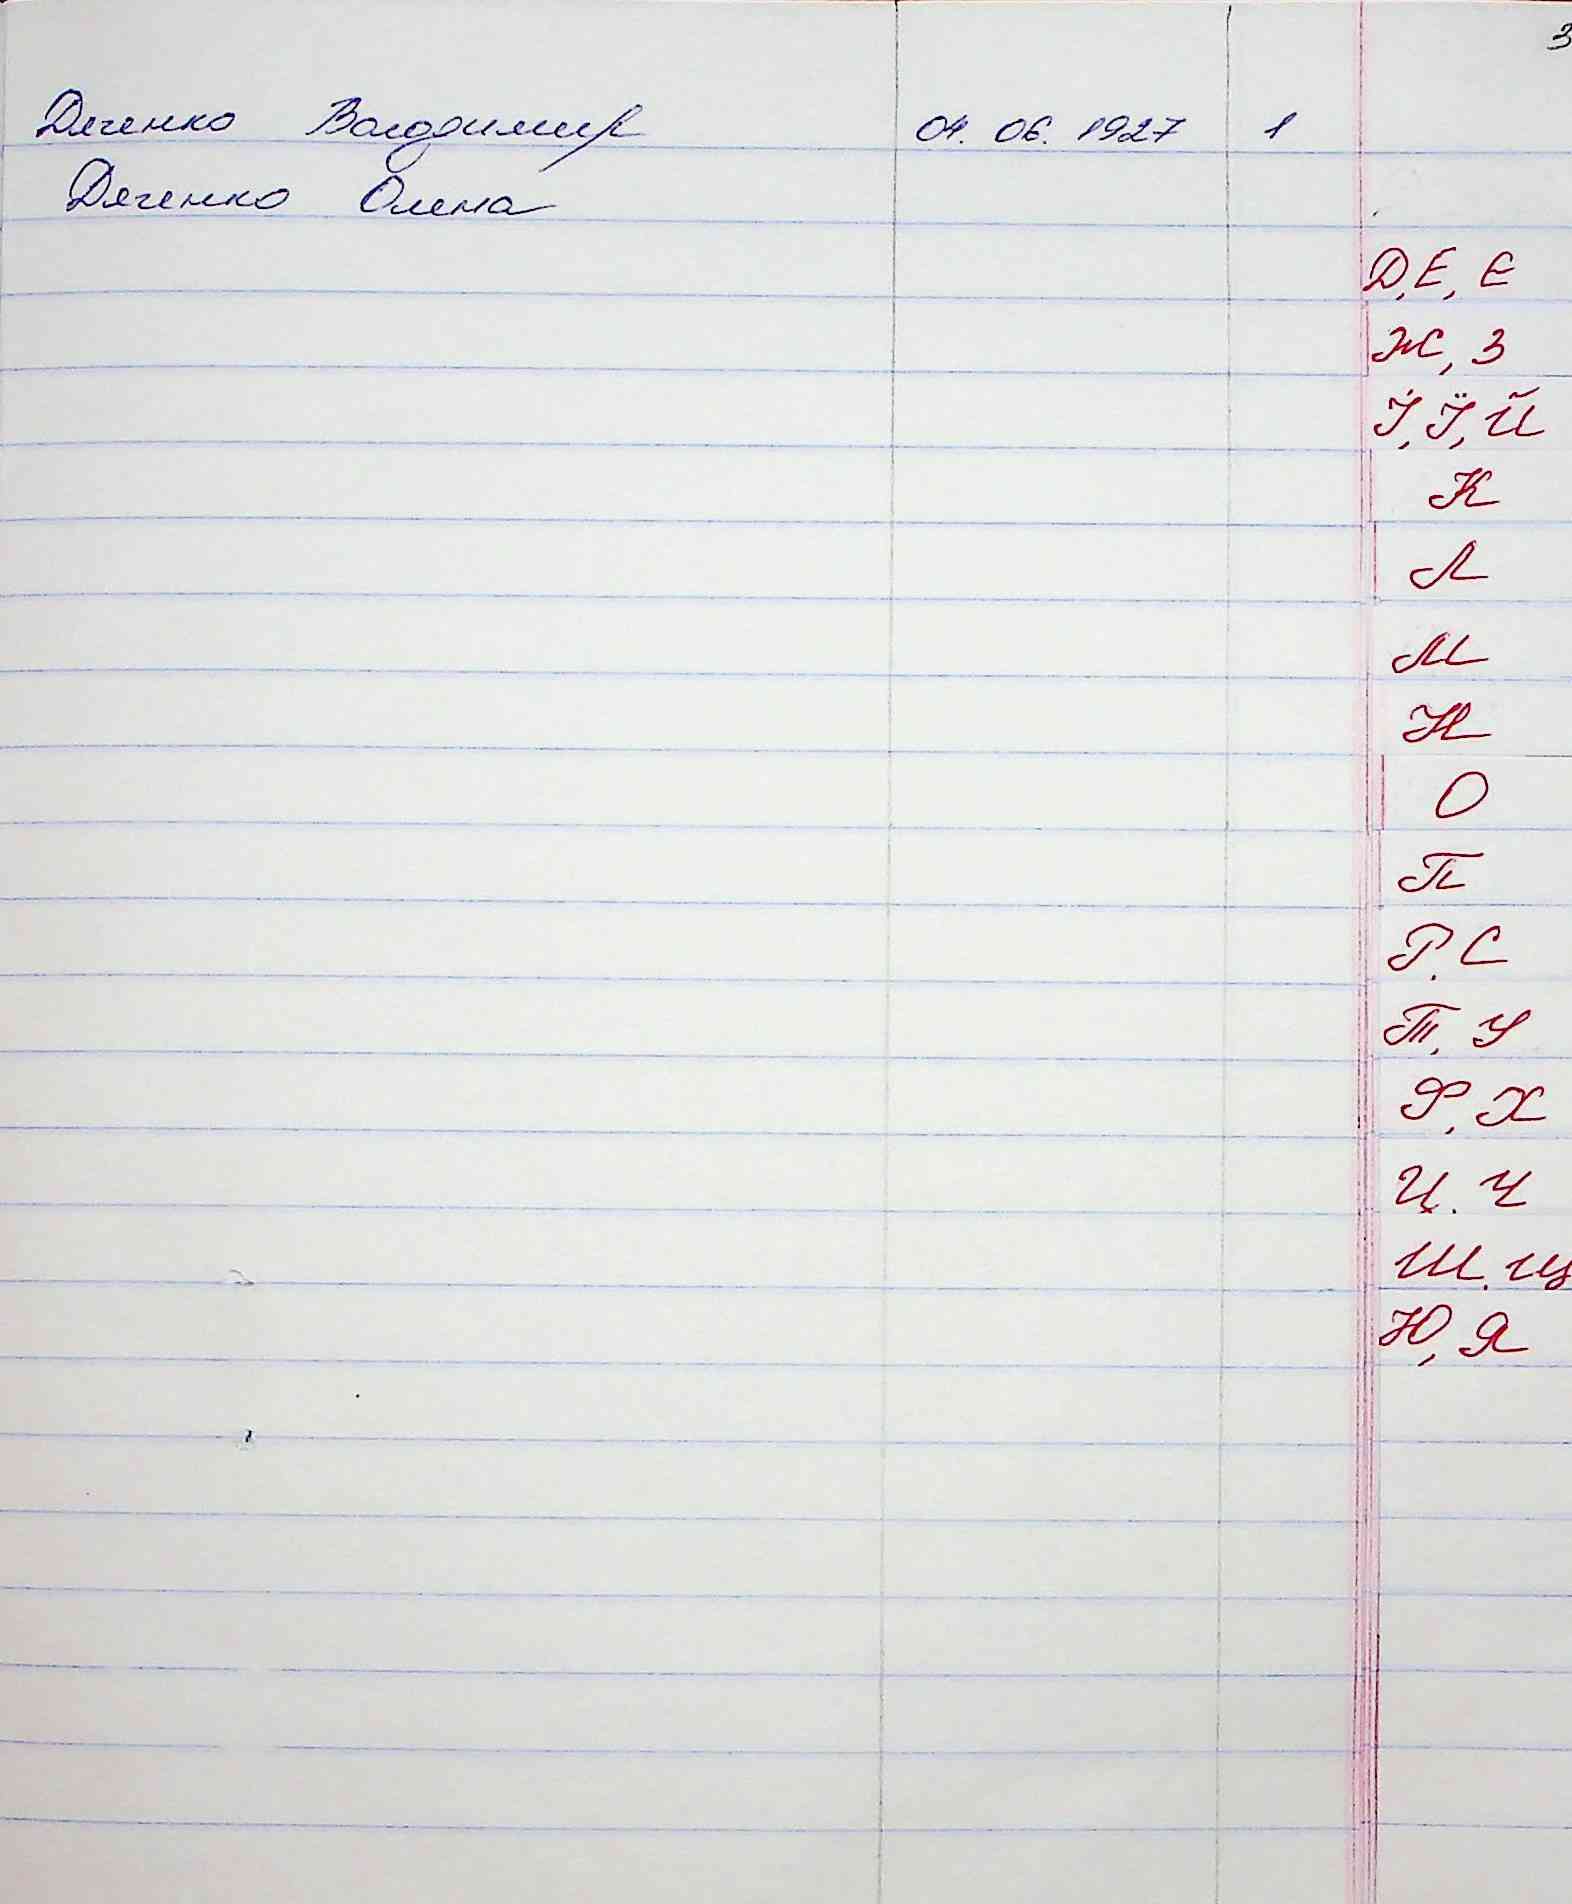 3
Дяченко Володимир 04. 06. 1927 1
Дяченко Олена
Д, Е, Є
Ж, З
І, Ї, Й
К
Л
М
Н
О
П
Р. С
Т, У
Ф, Х
Ц. Ч
Ш. Щ
Ю, Я